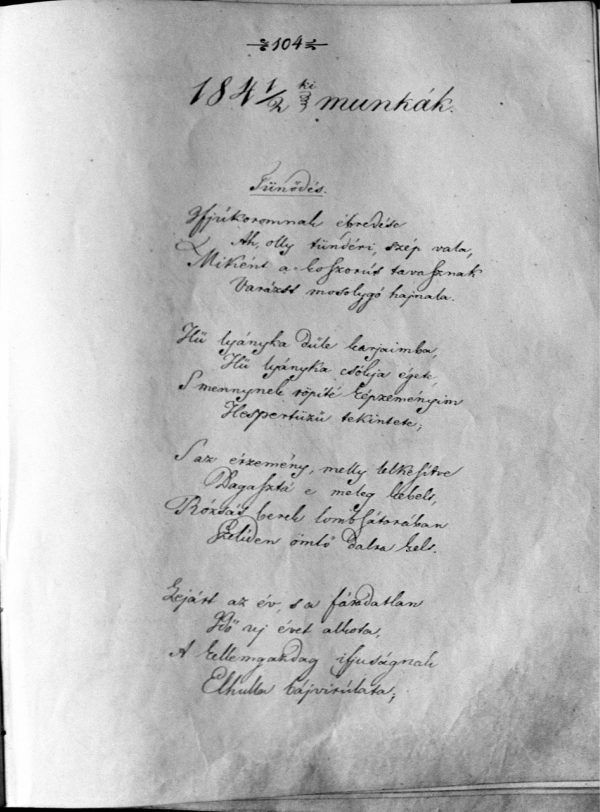 104
184 1/2 ki munkák.
Tünődés.
Ifjúkoromnak ébredése
Ah, olly tündéri, szép vala,
Miként a koszorús tavasznak
Varázst mosolygó hajnala.
Hü lyányka düle karjaimba,
Hü lyányka csókja égete,
S mennynek röpíté képzeményim
Hespertüzü tekintete;
S az érzemény, melly lelkesítve
Dagasztá e meleg kebelt,
Rózsás berek lombsátorában
Szeliden ömlő dalra kelt.
Lejárt az év, s a fáradatlan
Idő uj évet alkota,
A kellemgazdag ifjuságnak
Elhulla bájvirúlata;